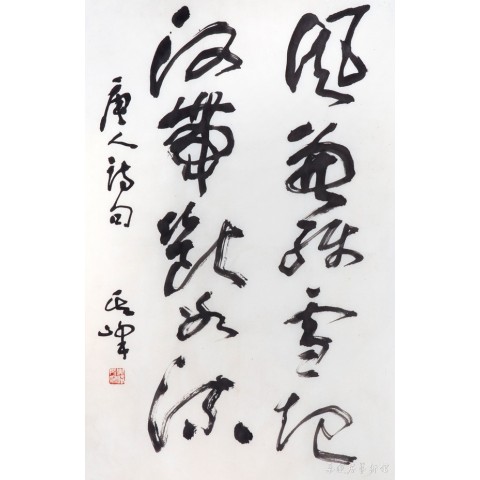 風兼殘雪起
河帶斷冰流
唐人詩句
其峰